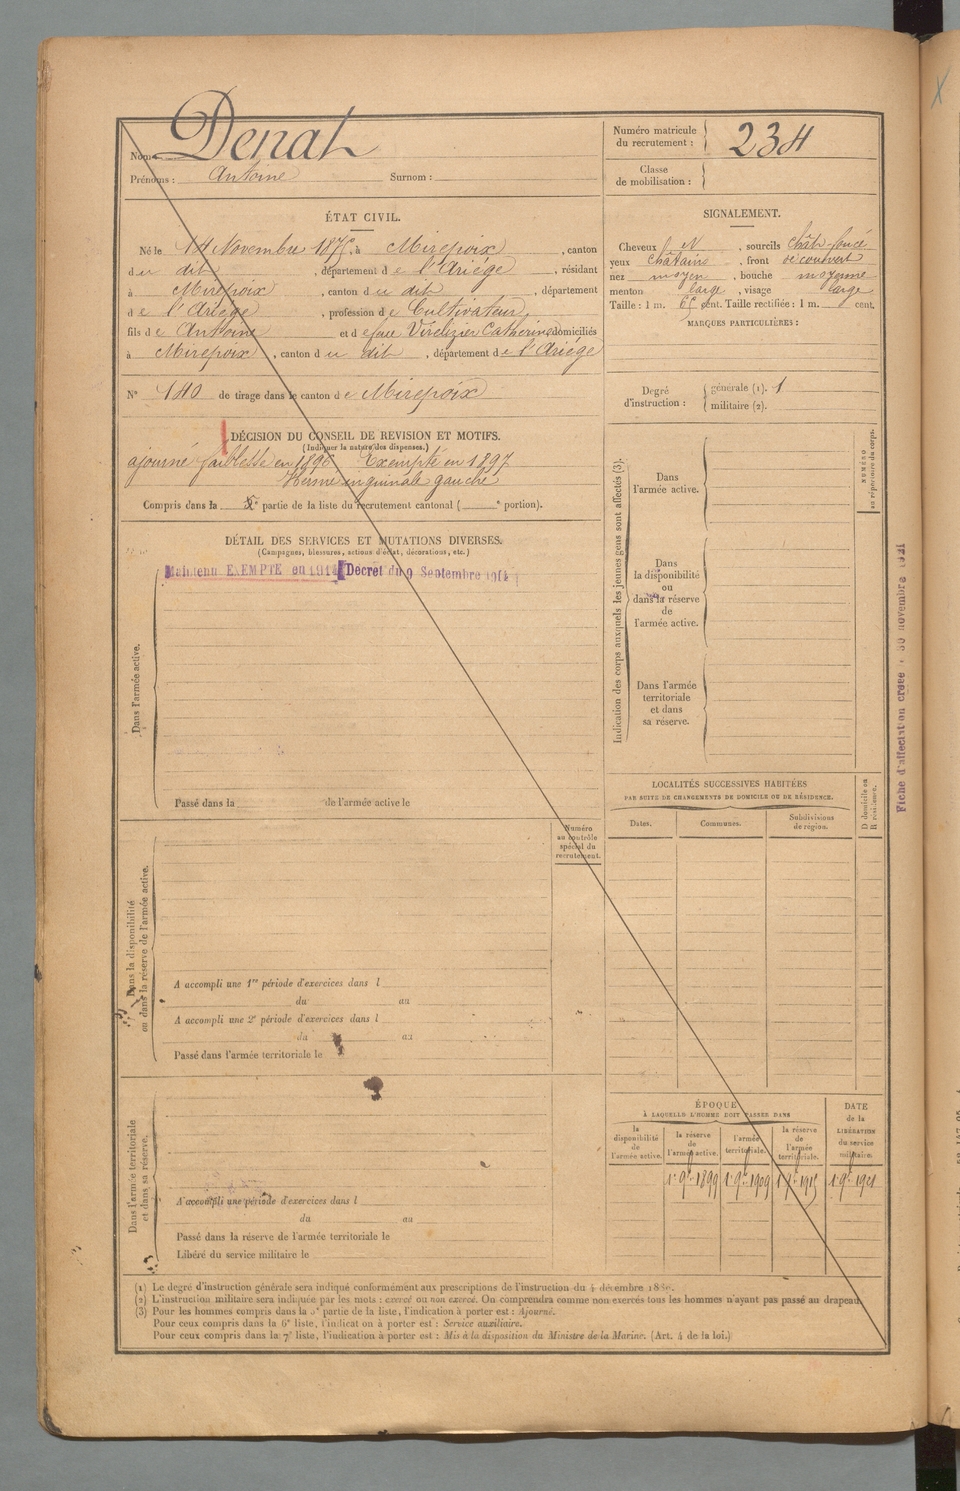 Nom : Denat
Prénoms : Antoine Surnom :
Numéro matricule du recrutement : 234
Classe de mobilisation :
ÉTAT CIVIL.
Né le 14 Novembre 1875, à Mirepoix, canton
du dit, département de l'Ariège, résidant
à Mirepoix, canton du dit, département
de l'Ariège, profession de Cultivateur,
fils de Antoine et de feue Virelizier Catherine domiciliés
à Mirepoix, canton du dit, département de l'Ariège
N° 140 de tirage dans le canton de Mirepoix
SIGNALEMENT.
Cheveux N, sourcils chât. foncé
yeux châtains, front découvert
nez moyen, bouche moyenne
menton large, visage large
Taille : 1 m. cent. Taille rectifiée : 1 m. cent.
MARQUES PARTICULIÈRES :
Degré d'instruction : générale (1). 1
militaire (2).
DÉCISION DU CONSEIL DE REVISION ET MOTIFS.
(Indiquer la nature des dispenses.)
ajourné faiblesse en 1896 Exempté en 1897
Hernie inguinale gauche
Compris dans la e partie de la liste du recrutement cantonal ( e portion).
DÉTAIL DES SERVICES ET MUTATIONS DIVERSES.
(Campagnes, blessures, actions d'éclat, décorations, etc.)
Maintenu EXEMPTÉ en 1914 Décret du 9 Septembre 1914
Dans l'armée active.
Passé dans la de l'armée active le
Indication des corps auxquels les jeunes gens sont affectés (3).
Dans l'armée active.
Dans la disponibilité ou dans la réserve de l'armée active.
Dans l'armée territoriale et dans sa réserve.
NUMÉRO au répertoire du corps.
LOCALITÉS SUCCESSIVES HABITÉES
PAR SUITE DE CHANGEMENTS DE DOMICILE OU DE RÉSIDENCE.
Dates. Communes. Subdivisions de région.
D domicile ou R résidence.
Fiche d'affectation créée 30 novembre 1921
Numéro au contrôle spécial du recrutement.
Dans la disponibilité ou dans la réserve de l'armée active.
A accompli une 1re période d'exercices dans l
du au
A accompli une 2e période d'exercices dans l
du au
Passé dans l'armée territoriale le
Dans l'armée territoriale et dans sa réserve.
A accompli une période d'exercices dans l
du au
Passé dans la réserve de l'armée territoriale le
Libéré du service militaire le
ÉPOQUE
À LAQUELLE L'HOMME DOIT PASSER DANS
la disponibilité de l'armée active. la réserve de l'armée active. l'armée territoriale. la réserve de l'armée territoriale.
DATE de la LIBÉRATION du service militaire.
1er 9bre 1899 1er 9bre 1909 1915 1er 9bre 1921
(1) Le degré d'instruction générale sera indiqué conformément aux prescriptions de l'instruction du 4 décembre 1889.
(2) L'instruction militaire sera indiquée par les mots : exercé ou non exercé. On comprendra comme non exercés tous les hommes n'ayant pas passé au drapeau.
(3) Pour les hommes compris dans la 5e partie de la liste, l'indication à porter est : Ajourné.
Pour ceux compris dans la 6e liste, l'indication à porter est : Service auxiliaire.
Pour ceux compris dans la 7e liste, l'indication à porter est : Mis à la disposition du Ministre de la Marine. (Art. 4 de la loi.)